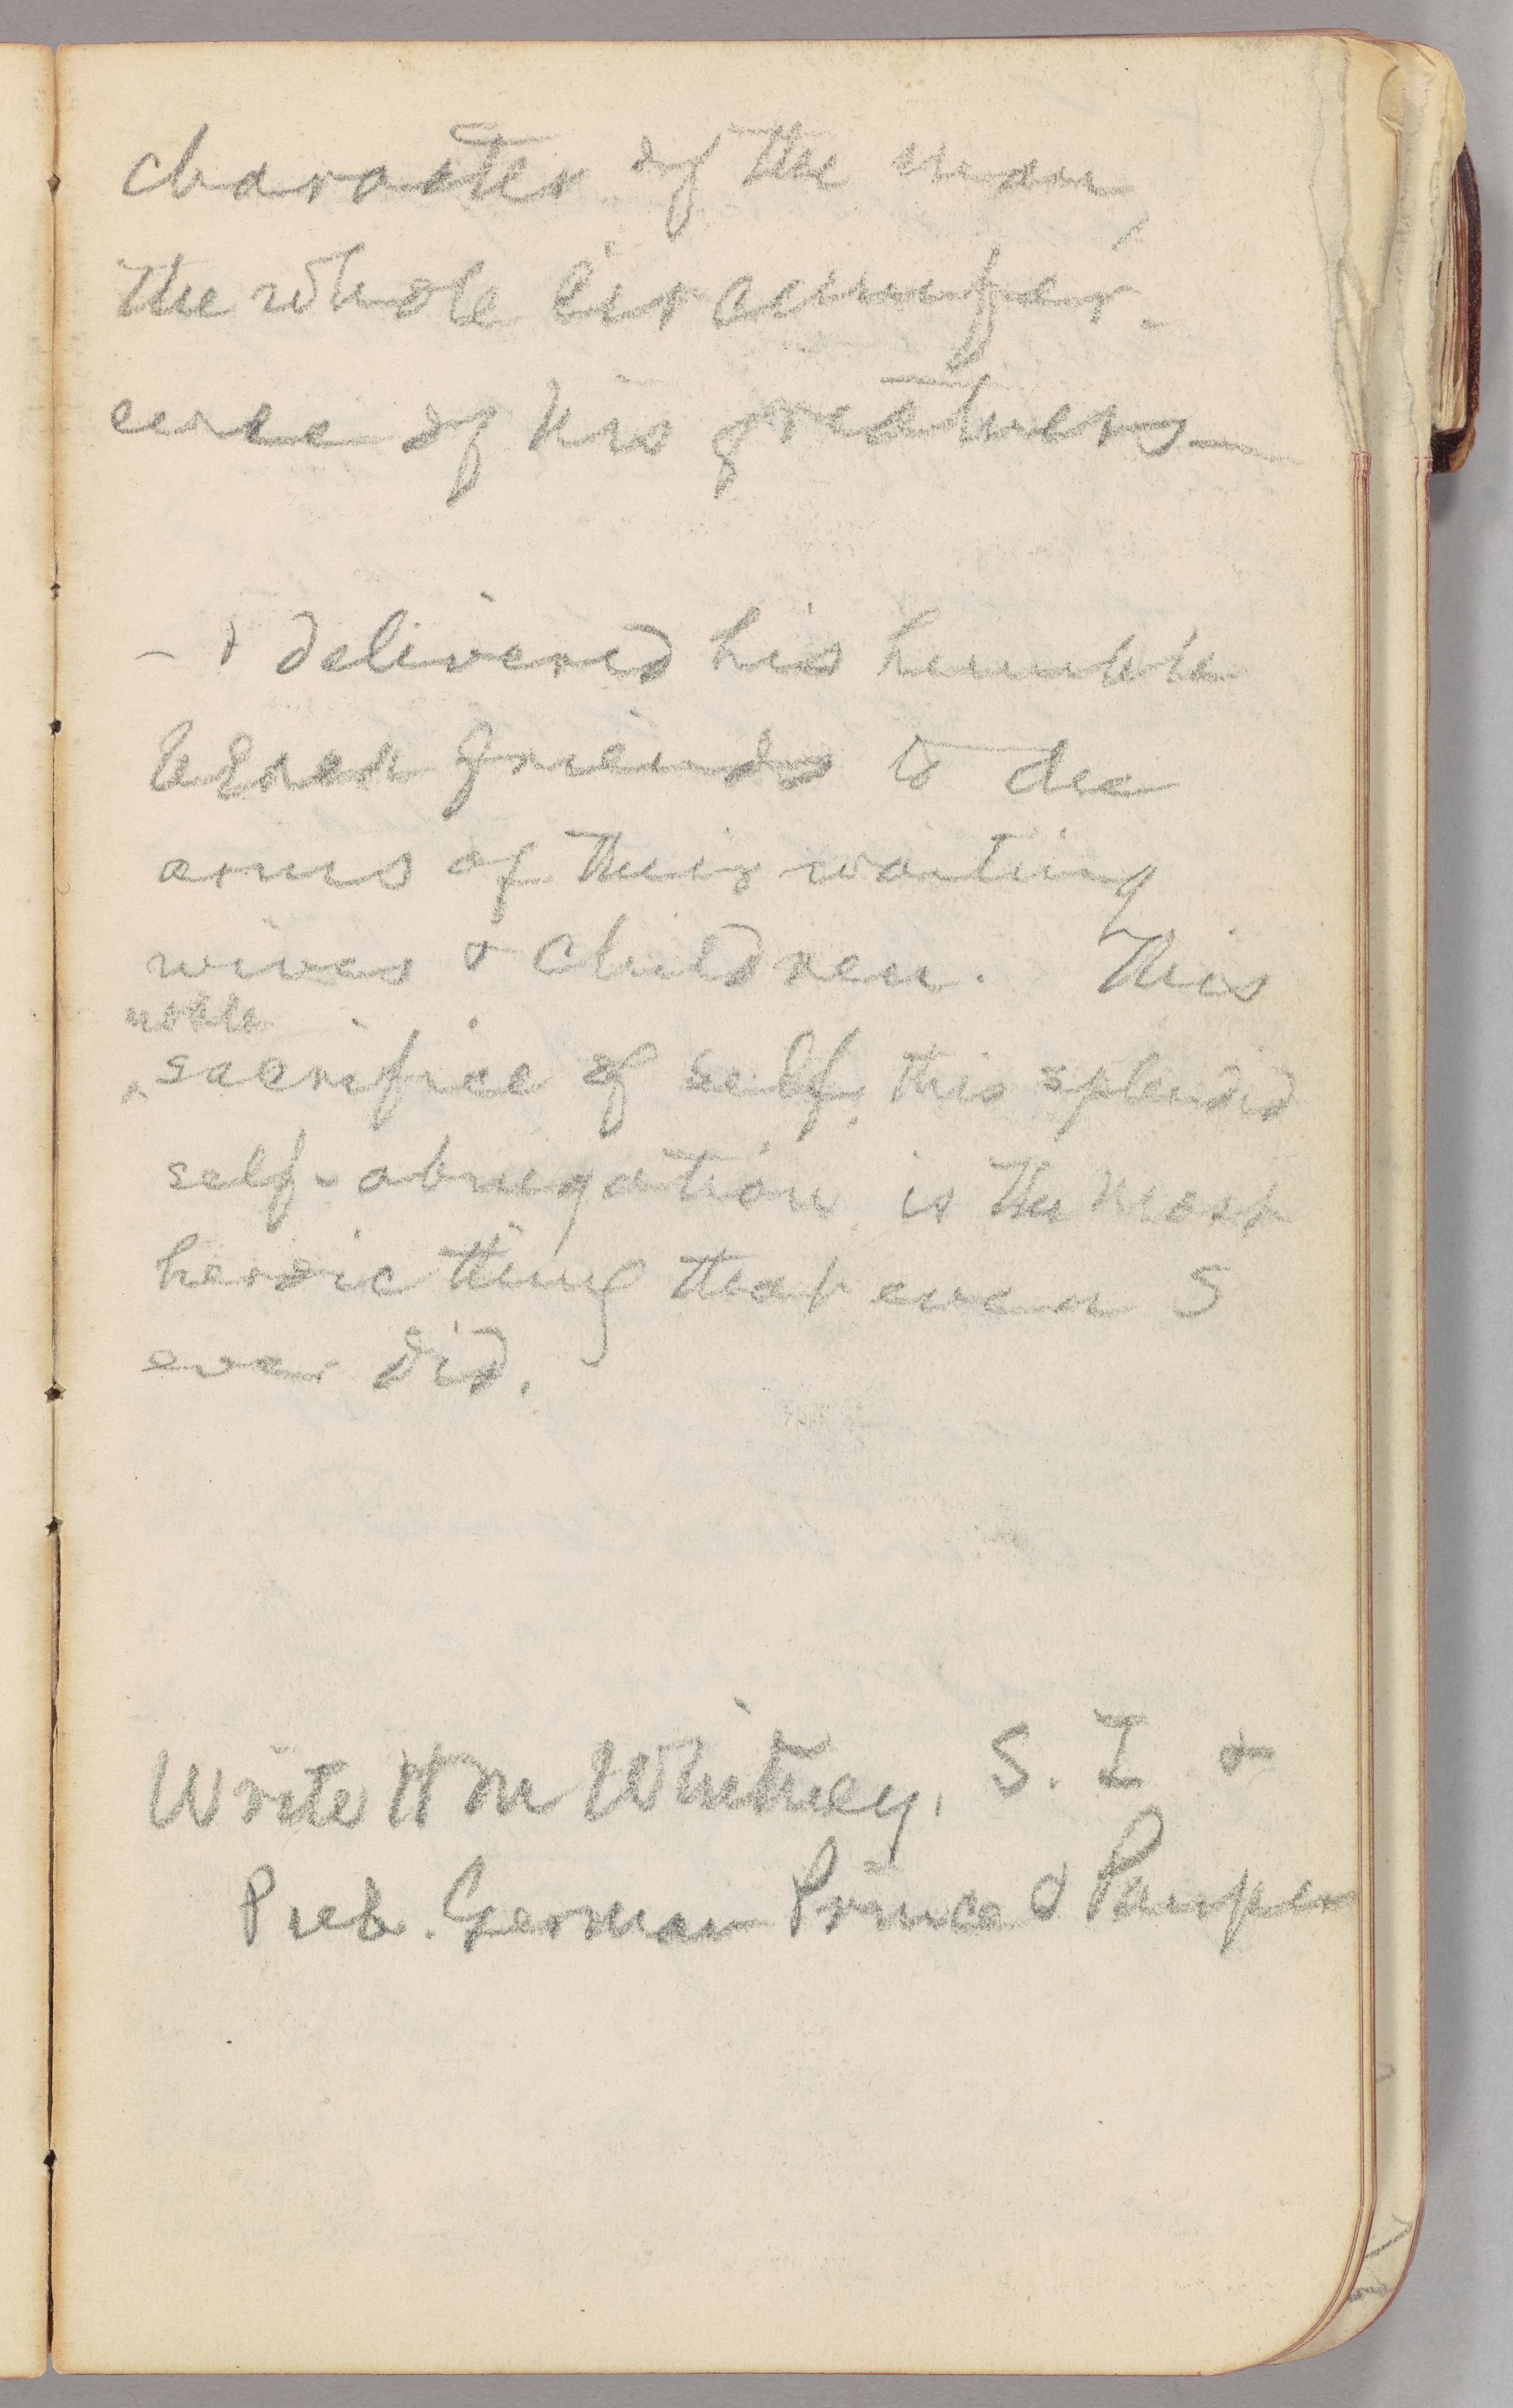 character of the man,
the whole circumfer-
ence of his greatness—
— & delivered his humble
friends to the
arms of their waiting
wives & children. This
noble
^sacrifice of self, this splendid
self-abnegation, is the most
heroic thing that even S
ever did.
Write Wm Whitney, S. I &
Pub. German Prince & Pauper